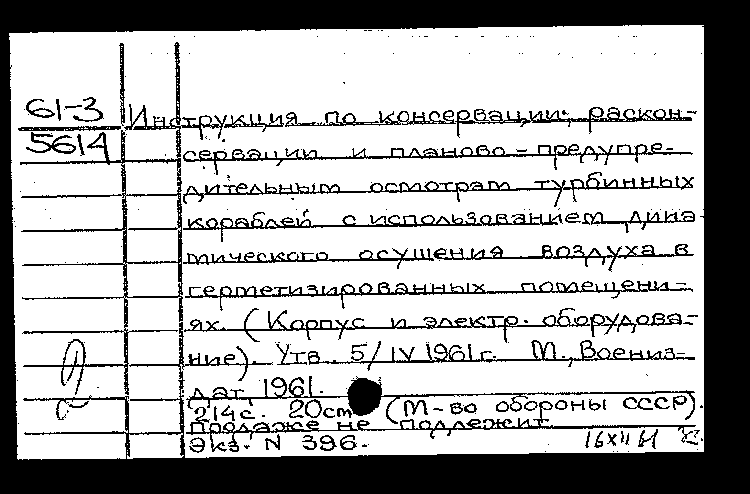 61-3 Инструкция по консервации, раскон-
5614 сервации и планово-предупре-
дительным осмотрам турбинных
кораблей с использованием дина
мического осушения воздуха в
герметизированных помещени-
ях. (Корпус и электр. оборудова-
ние). Утв. 5/IV 1961г. М., Воениз-
дат, 1961.
214с. 20cm (М-во обороны СССР).
Продаже не подлежит
Экз. N 396.
16 XII 61